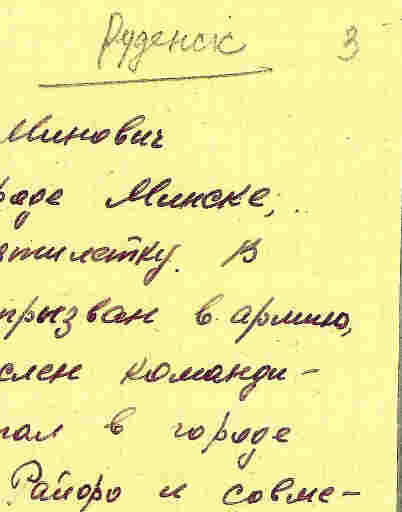 Руденск 3
Минович
роде Минске,
ятилетку. В
призван в армию,
слен команди-
тал в городе
Райоро и совме-